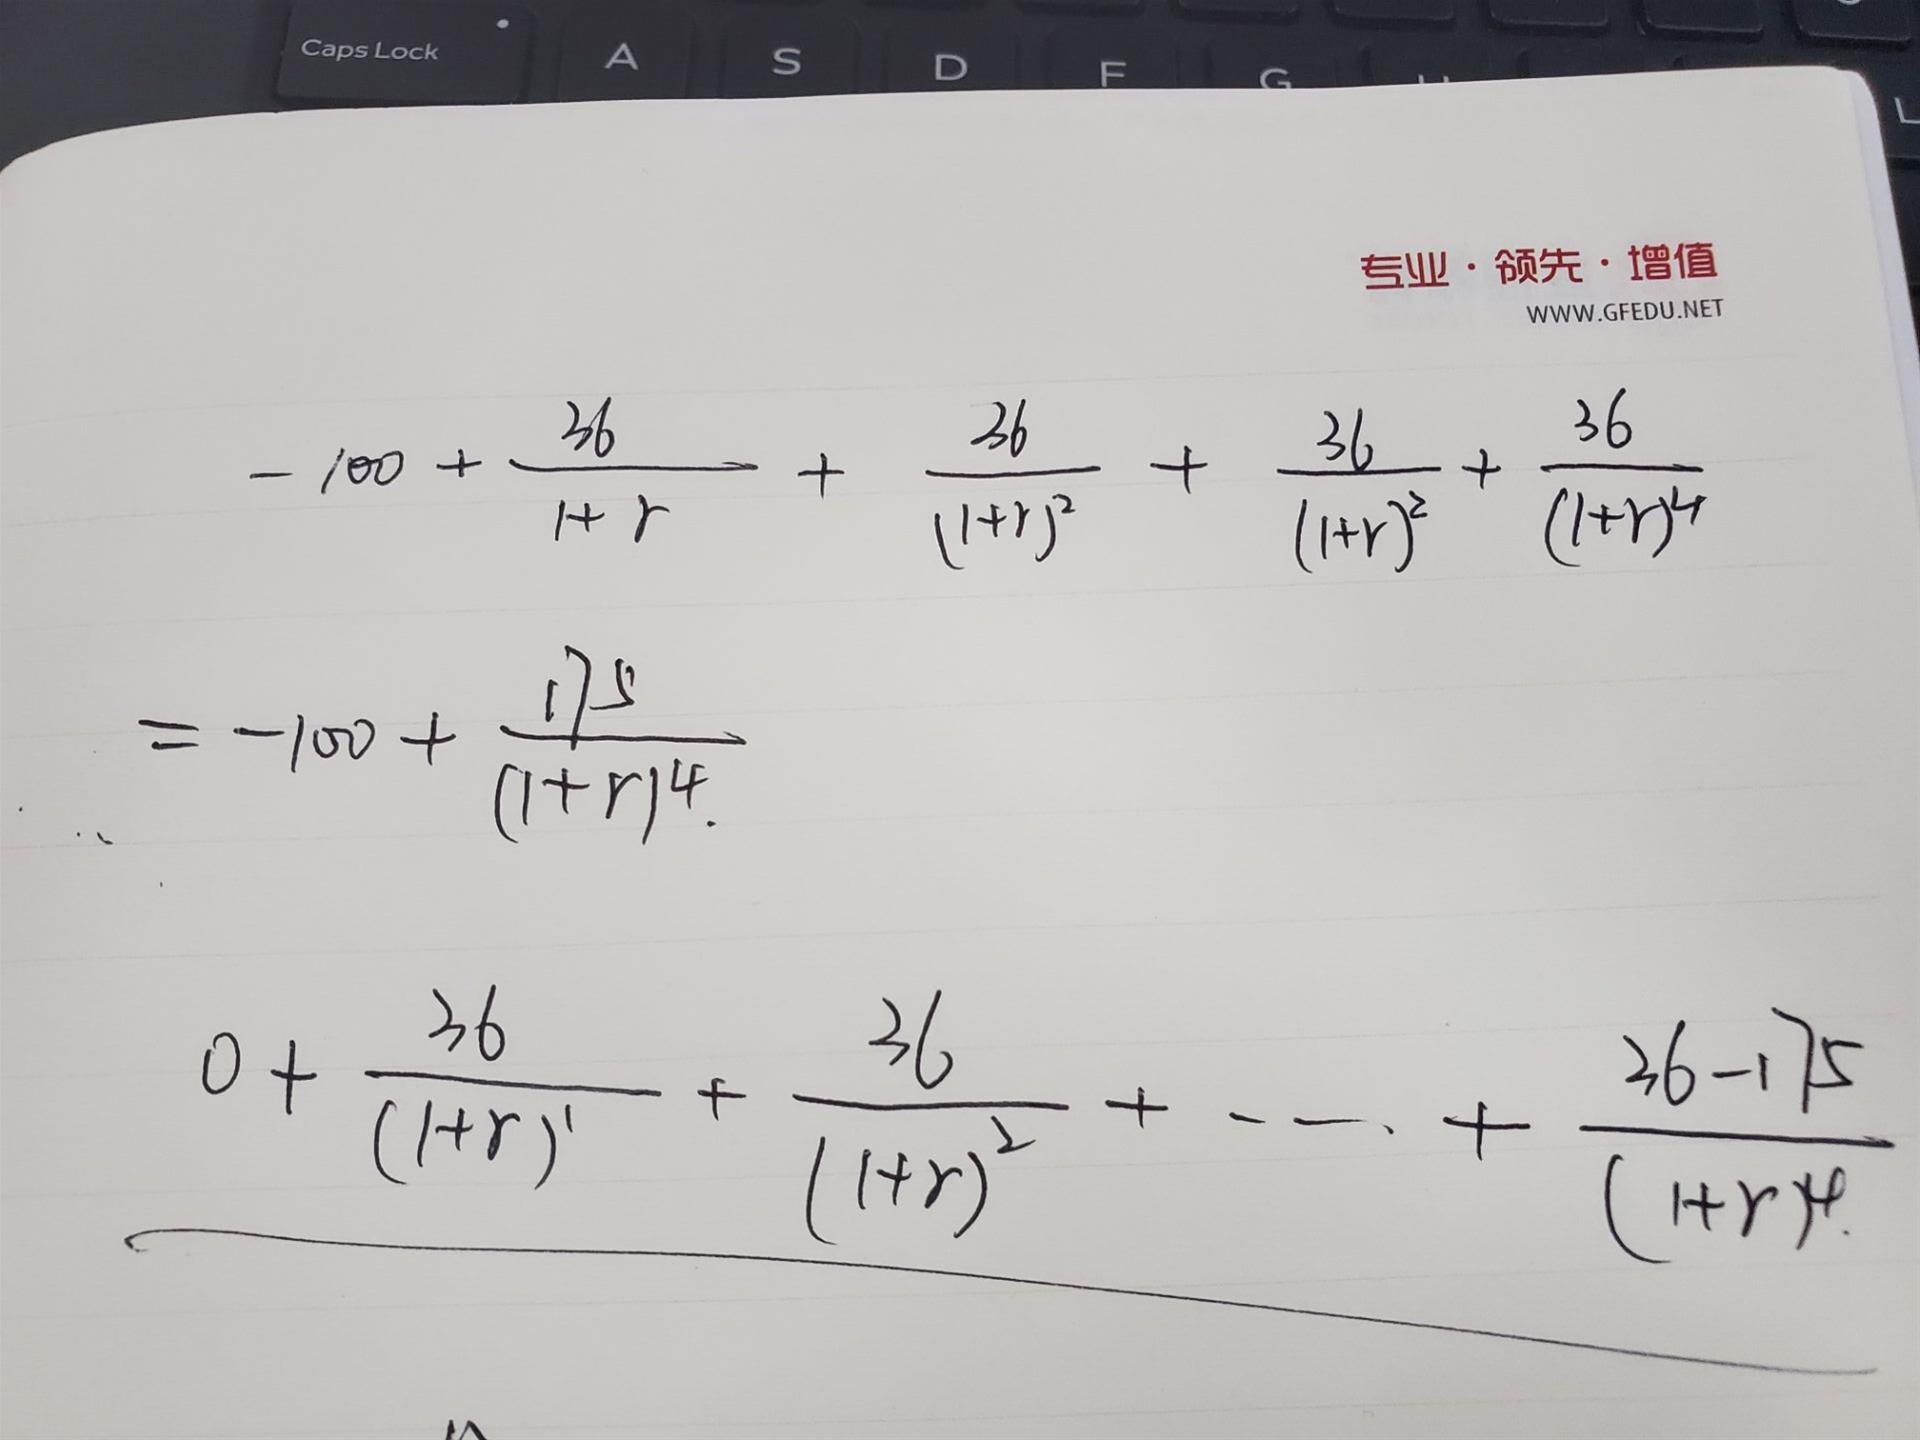 Caps Lock A S D F G
专业·领先·增值
WWW.GFEDU.NET
-100 + 36/(1+r) + 36/(1+r)² + 36/(1+r)² + 36/(1+r)⁴
= -100 + 175/(1+r)⁴.
0 + 36/(1+r)¹ + 36/(1+r)² + ---. + (36-175)/(1+r)⁴.